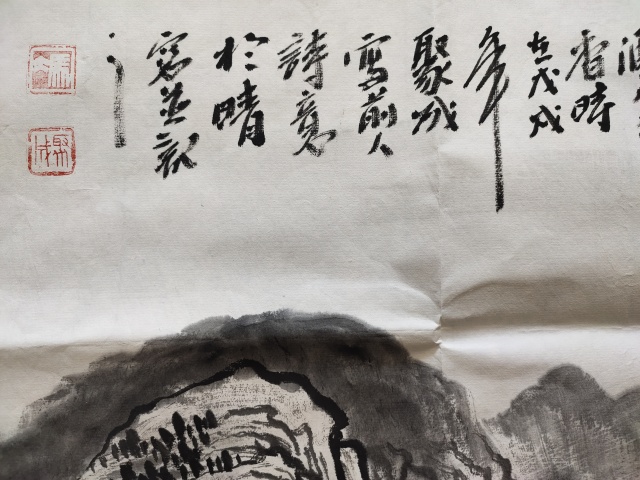 香時
在戊戌
年
聚成
寫前人
詩意
於晴
窗並記
聚成